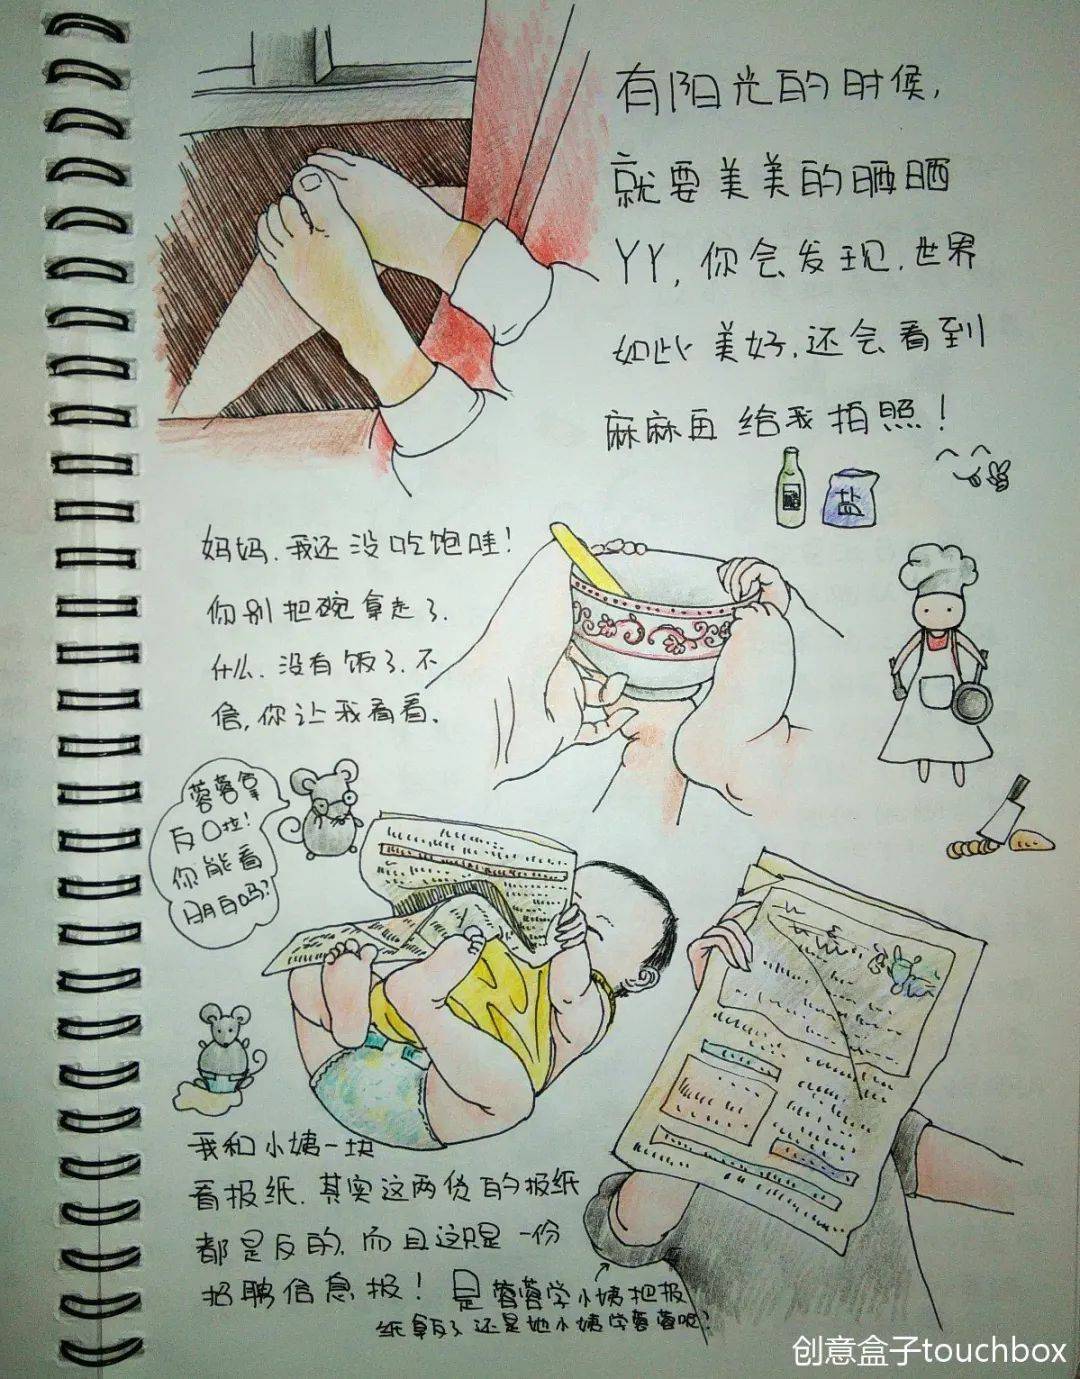 有阳光的时候,
就要美美的晒晒
YY,你会发现.世界
如此美好.还会看到
麻麻再给我拍照!
盐
妈妈.我还没吃饱哇!
你别把碗拿走了.
什么.没有饭了.不
信,你让我看看.
蓉蓉拿
反口拉!
你能看
明白吗?
我和小姨一块
看报纸.其实这两份的报纸
都是反的.而且这只是一份
招聘信息报!是蓉蓉学小姨把报
纸拿反了还是她小姨学蓉蓉呢?
创意盒子touchbox